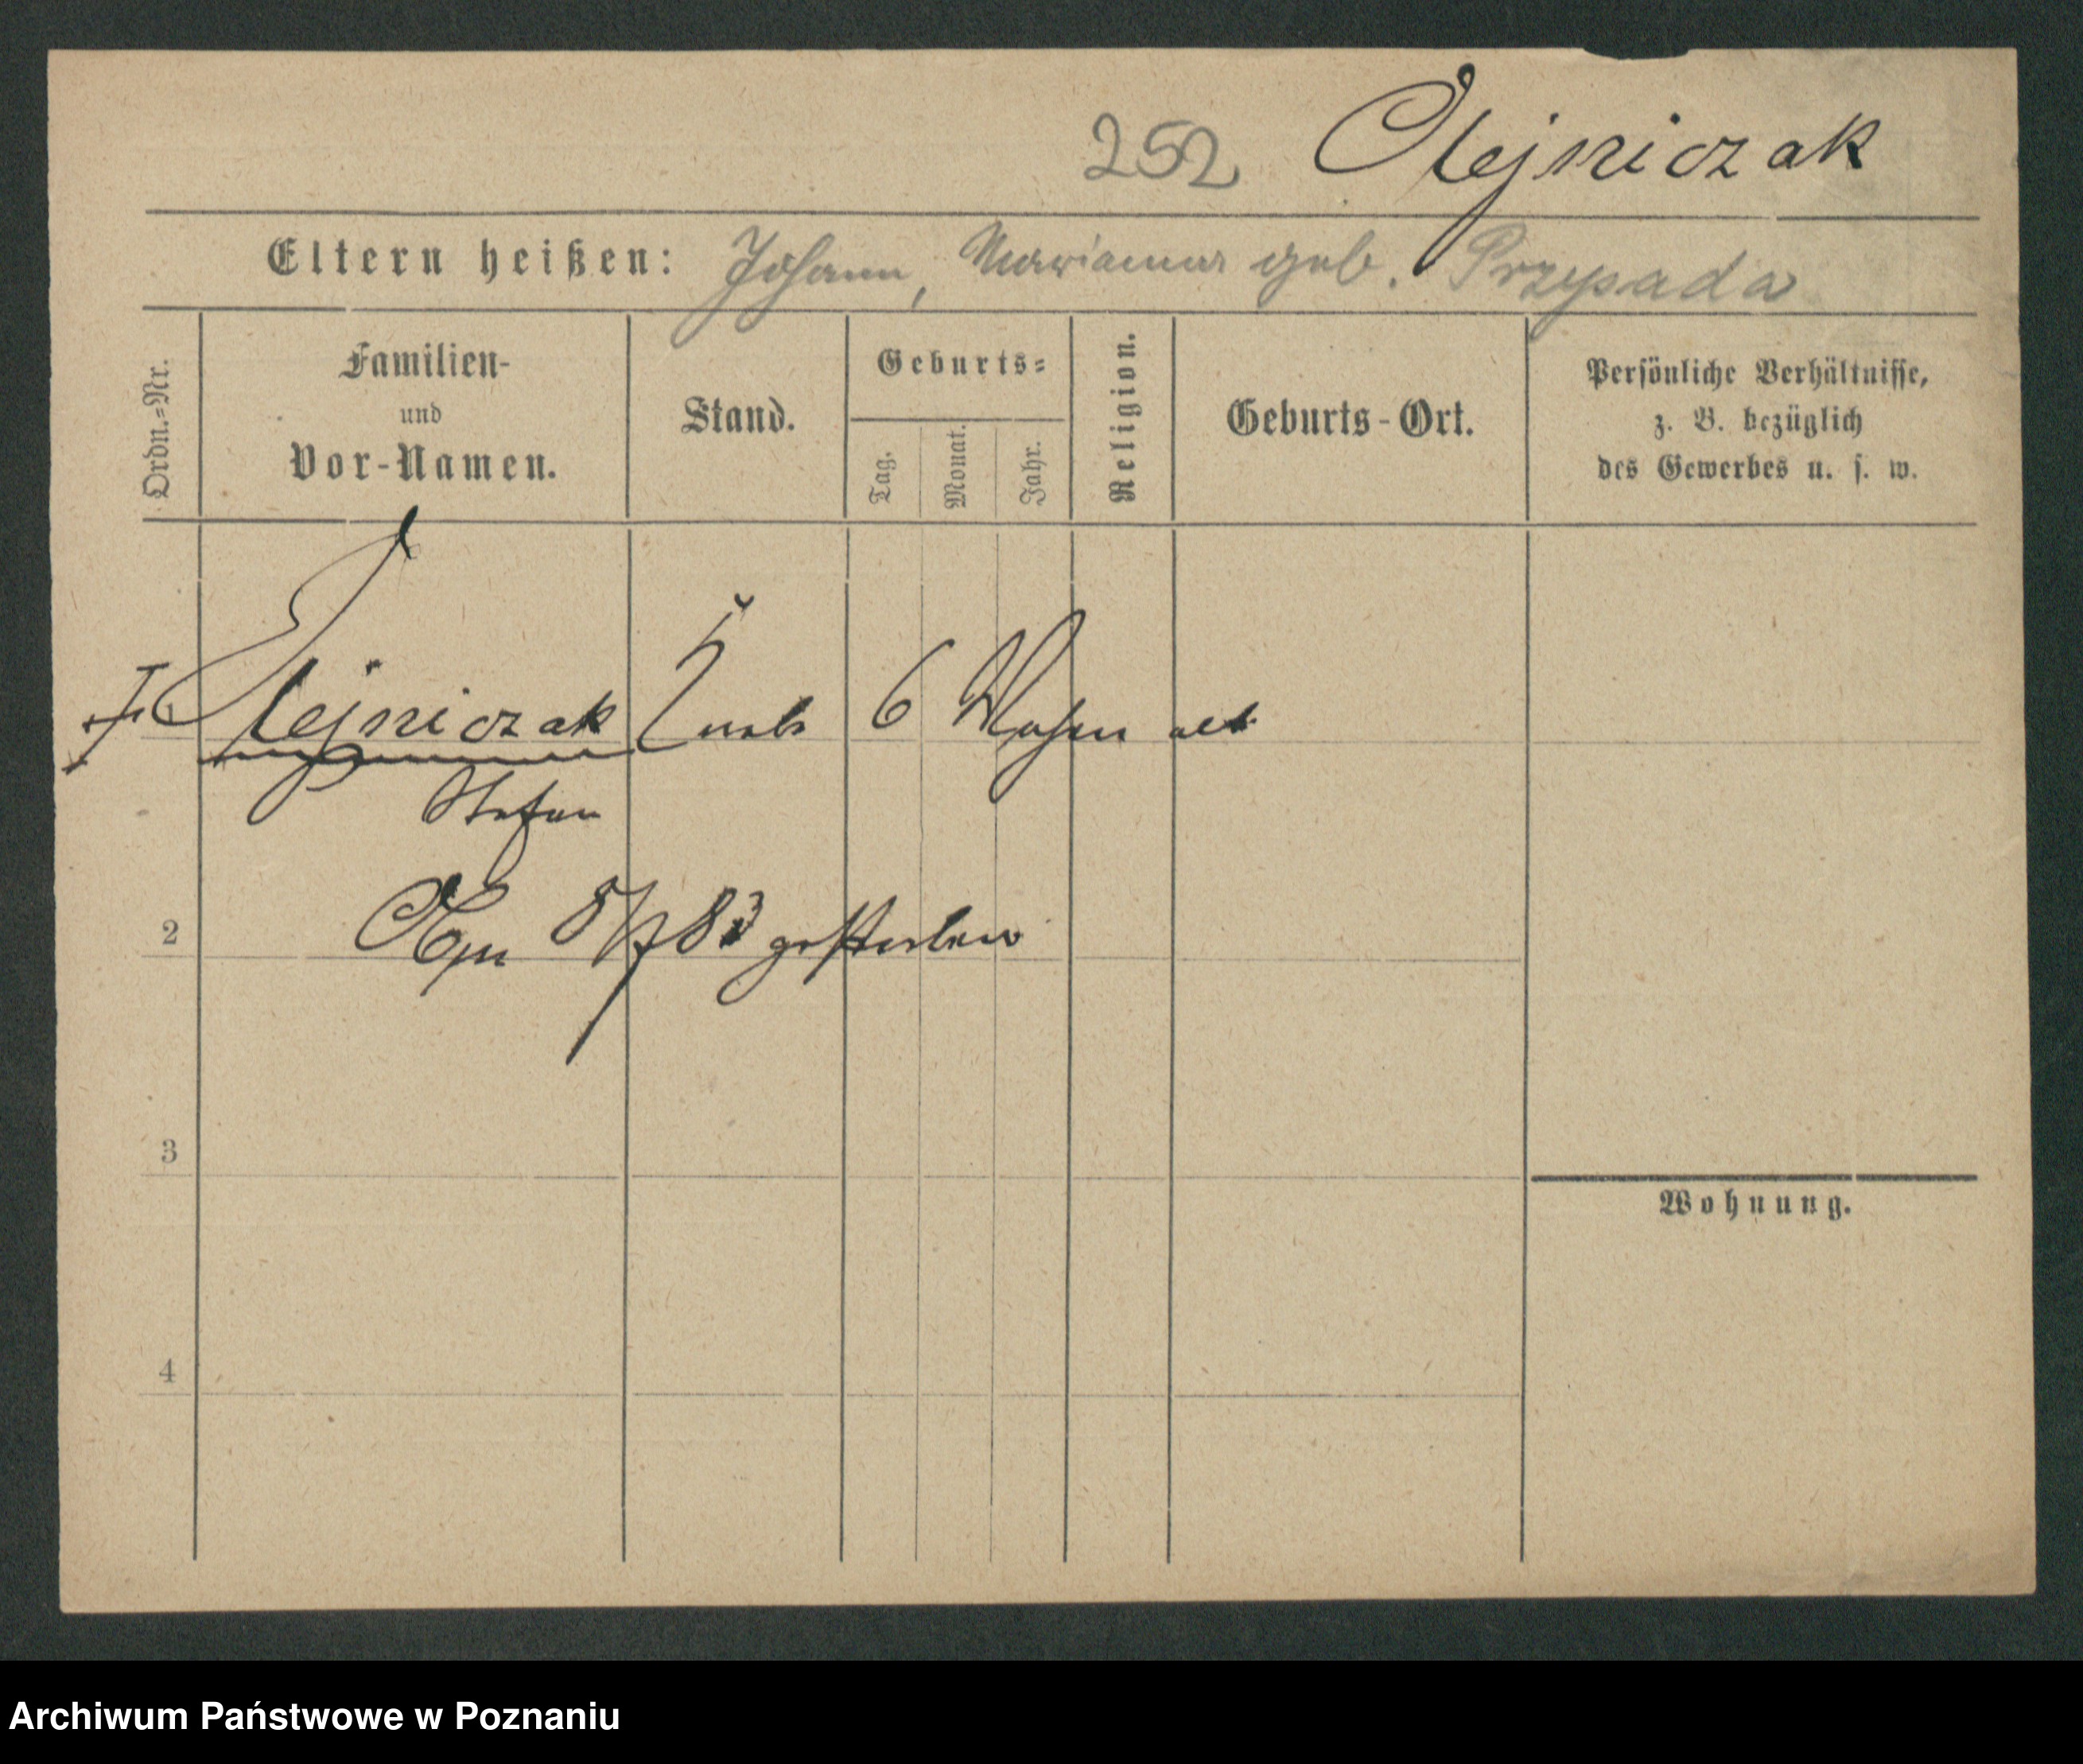 252 Olejniczak
Eltern heißen: Johann, Marianna geb. Przypada
Ordn.=Nr.
Familien-
und
Vor-Namen.
Stand.
Geburts=
Tag.
Monat.
Jahr.
Religion.
Geburts-Ort.
Persönliche Verhältnisse,
z. B. bezüglich
des Gewerbes u. s. w.
1 Olejniczak 6 Wochen alt
Stefan
2 gestorben
3
Wohnung.
4
Archiwum Państwowe w Poznaniu